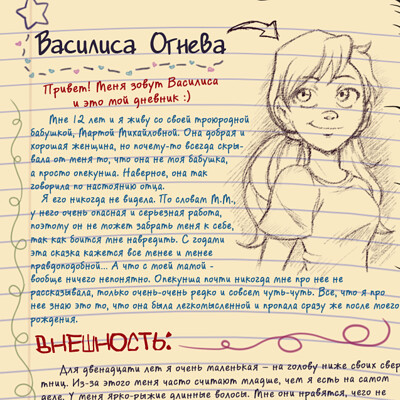 Василиса Огнева
Привет! Меня зовут Василиса
и это мой дневник :)
Мне 12 лет и я живу со своей троюродной
бабушкой, Мартой Михайловной. Она добрая и
хорошая женщина, но почему-то всегда скры-
вала от меня то, что она не моя бабушка,
а просто опекунша. Наверное, она так
говорила по настоянию отца.
Я его никогда не видела. По словам М.М.,
у него очень опасная и серьезная работа,
поэтому он не может забрать меня к себе,
так как боится мне навредить. С годами
эта сказка кажется все менее и менее
правдоподобной... А что с моей мамой -
вообще ничего непонятно. Опекунша почти никогда мне про нее не
рассказывала, только очень-очень редко и совсем чуть-чуть. Все, что я про
нее знаю это то, что она была легкомысленной и пропала сразу же после моего
рождения.
Внешность:
Для двенадцати лет я очень маленькая - на голову ниже своих свер
тниц. Из-за этого меня часто считают младше, чем я есть на самом
деле. У меня ярко-рыжие длинные волосы. Мне они нравятся, чего не